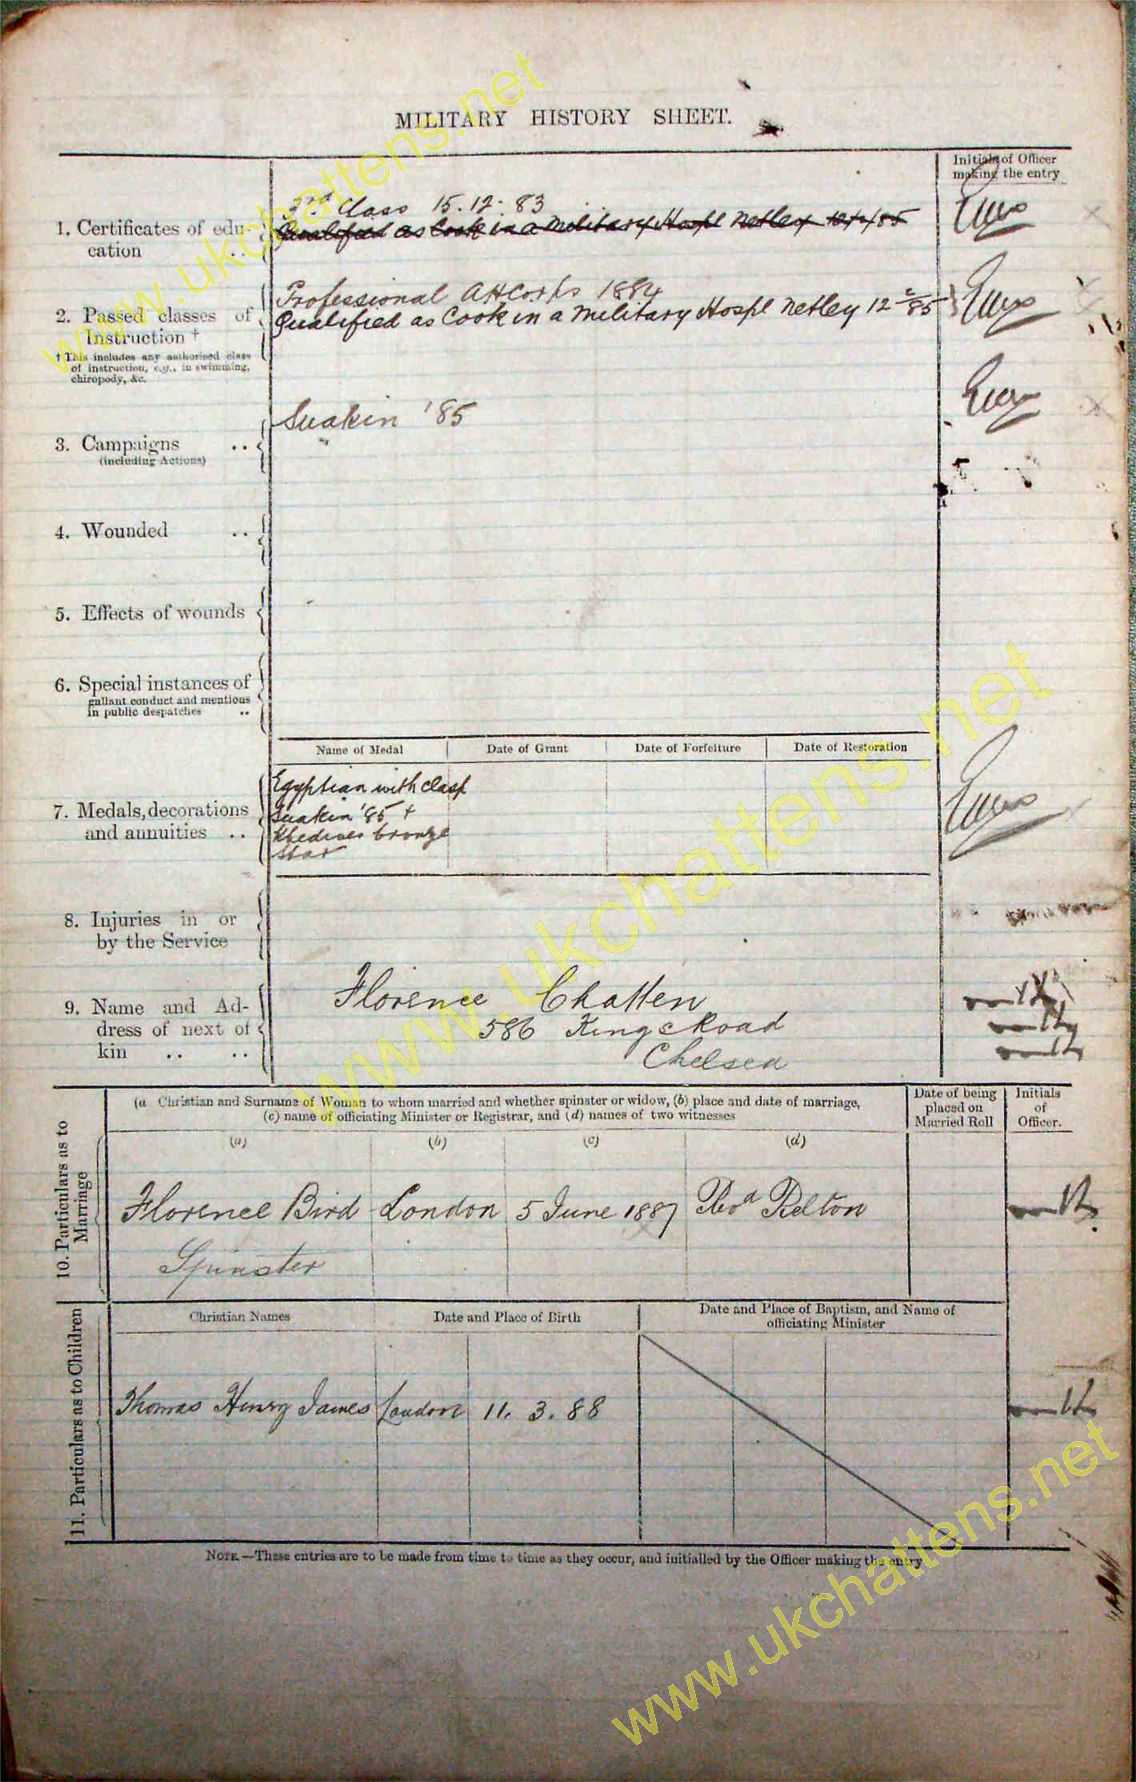 MILITARY HISTORY SHEET.
Initials of Officer
making the entry
1. Certificates of edu-
cation ..
Class 15.12.83
Qualified as Cook in a Military Hospl Netley
2. Passed classes of
Instruction †
† This includes any authorised class
of instruction, e.g., in swimming,
chiropody, &c.
Professional AHCorps 1884
Qualified as Cook in a Military Hospl Netley 12 2/85
3. Campaigns ..
(including Actions)
Suakin '85
4. Wounded ..
5. Effects of wounds
6. Special instances of
gallant conduct and mentions
in public despatches ..
Name of Medal
Date of Grant
Date of Forfeiture
Date of Restoration
7. Medals, decorations
and annuities ..
Egyptian with clasp
Suakin '85 +
Khedives bronze
Star
8. Injuries in or
by the Service
9. Name and Ad-
dress of next of
kin .. ..
Florence Chatten
586 Kings Road
Chelsea
10. Particulars as to
Marriage
(a Christian and Surname of Woman to whom married and whether spinster or widow, (b) place and date of marriage,
(c) name of officiating Minister or Registrar, and (d) names of two witnesses
Date of being
placed on
Married Roll
Initials
of
Officer.
(a) (b) (c) (d)
Florence Bird London 5 June 1887 Revd Relton
Spinster
11. Particulars as to Children
Christian Names
Date and Place of Birth
Date and Place of Baptism, and Name of
officiating Minister
Thomas Henry James London 11. 3. 88
NOTE.—These entries are to be made from time to time as they occur, and initialled by the Officer making the entry
www.ukchattens.net
www.ukchattens.net
www.ukchattens.net